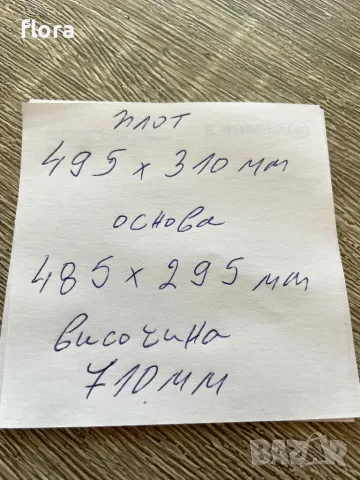 flora
плот
495 x 310 мм
основа
485 x 295 мм
височина
710 мм
BAZAR